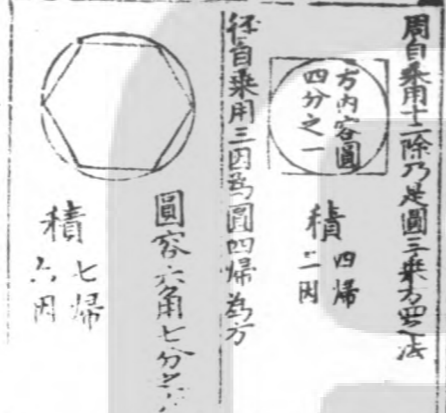 周自乘用十二除乃是圓三乘方四之法
方內容圓
四分之一
積 四歸
二因
徑自乘用三因為圓四歸為方
圓容六角七分之六
積 七歸
六因